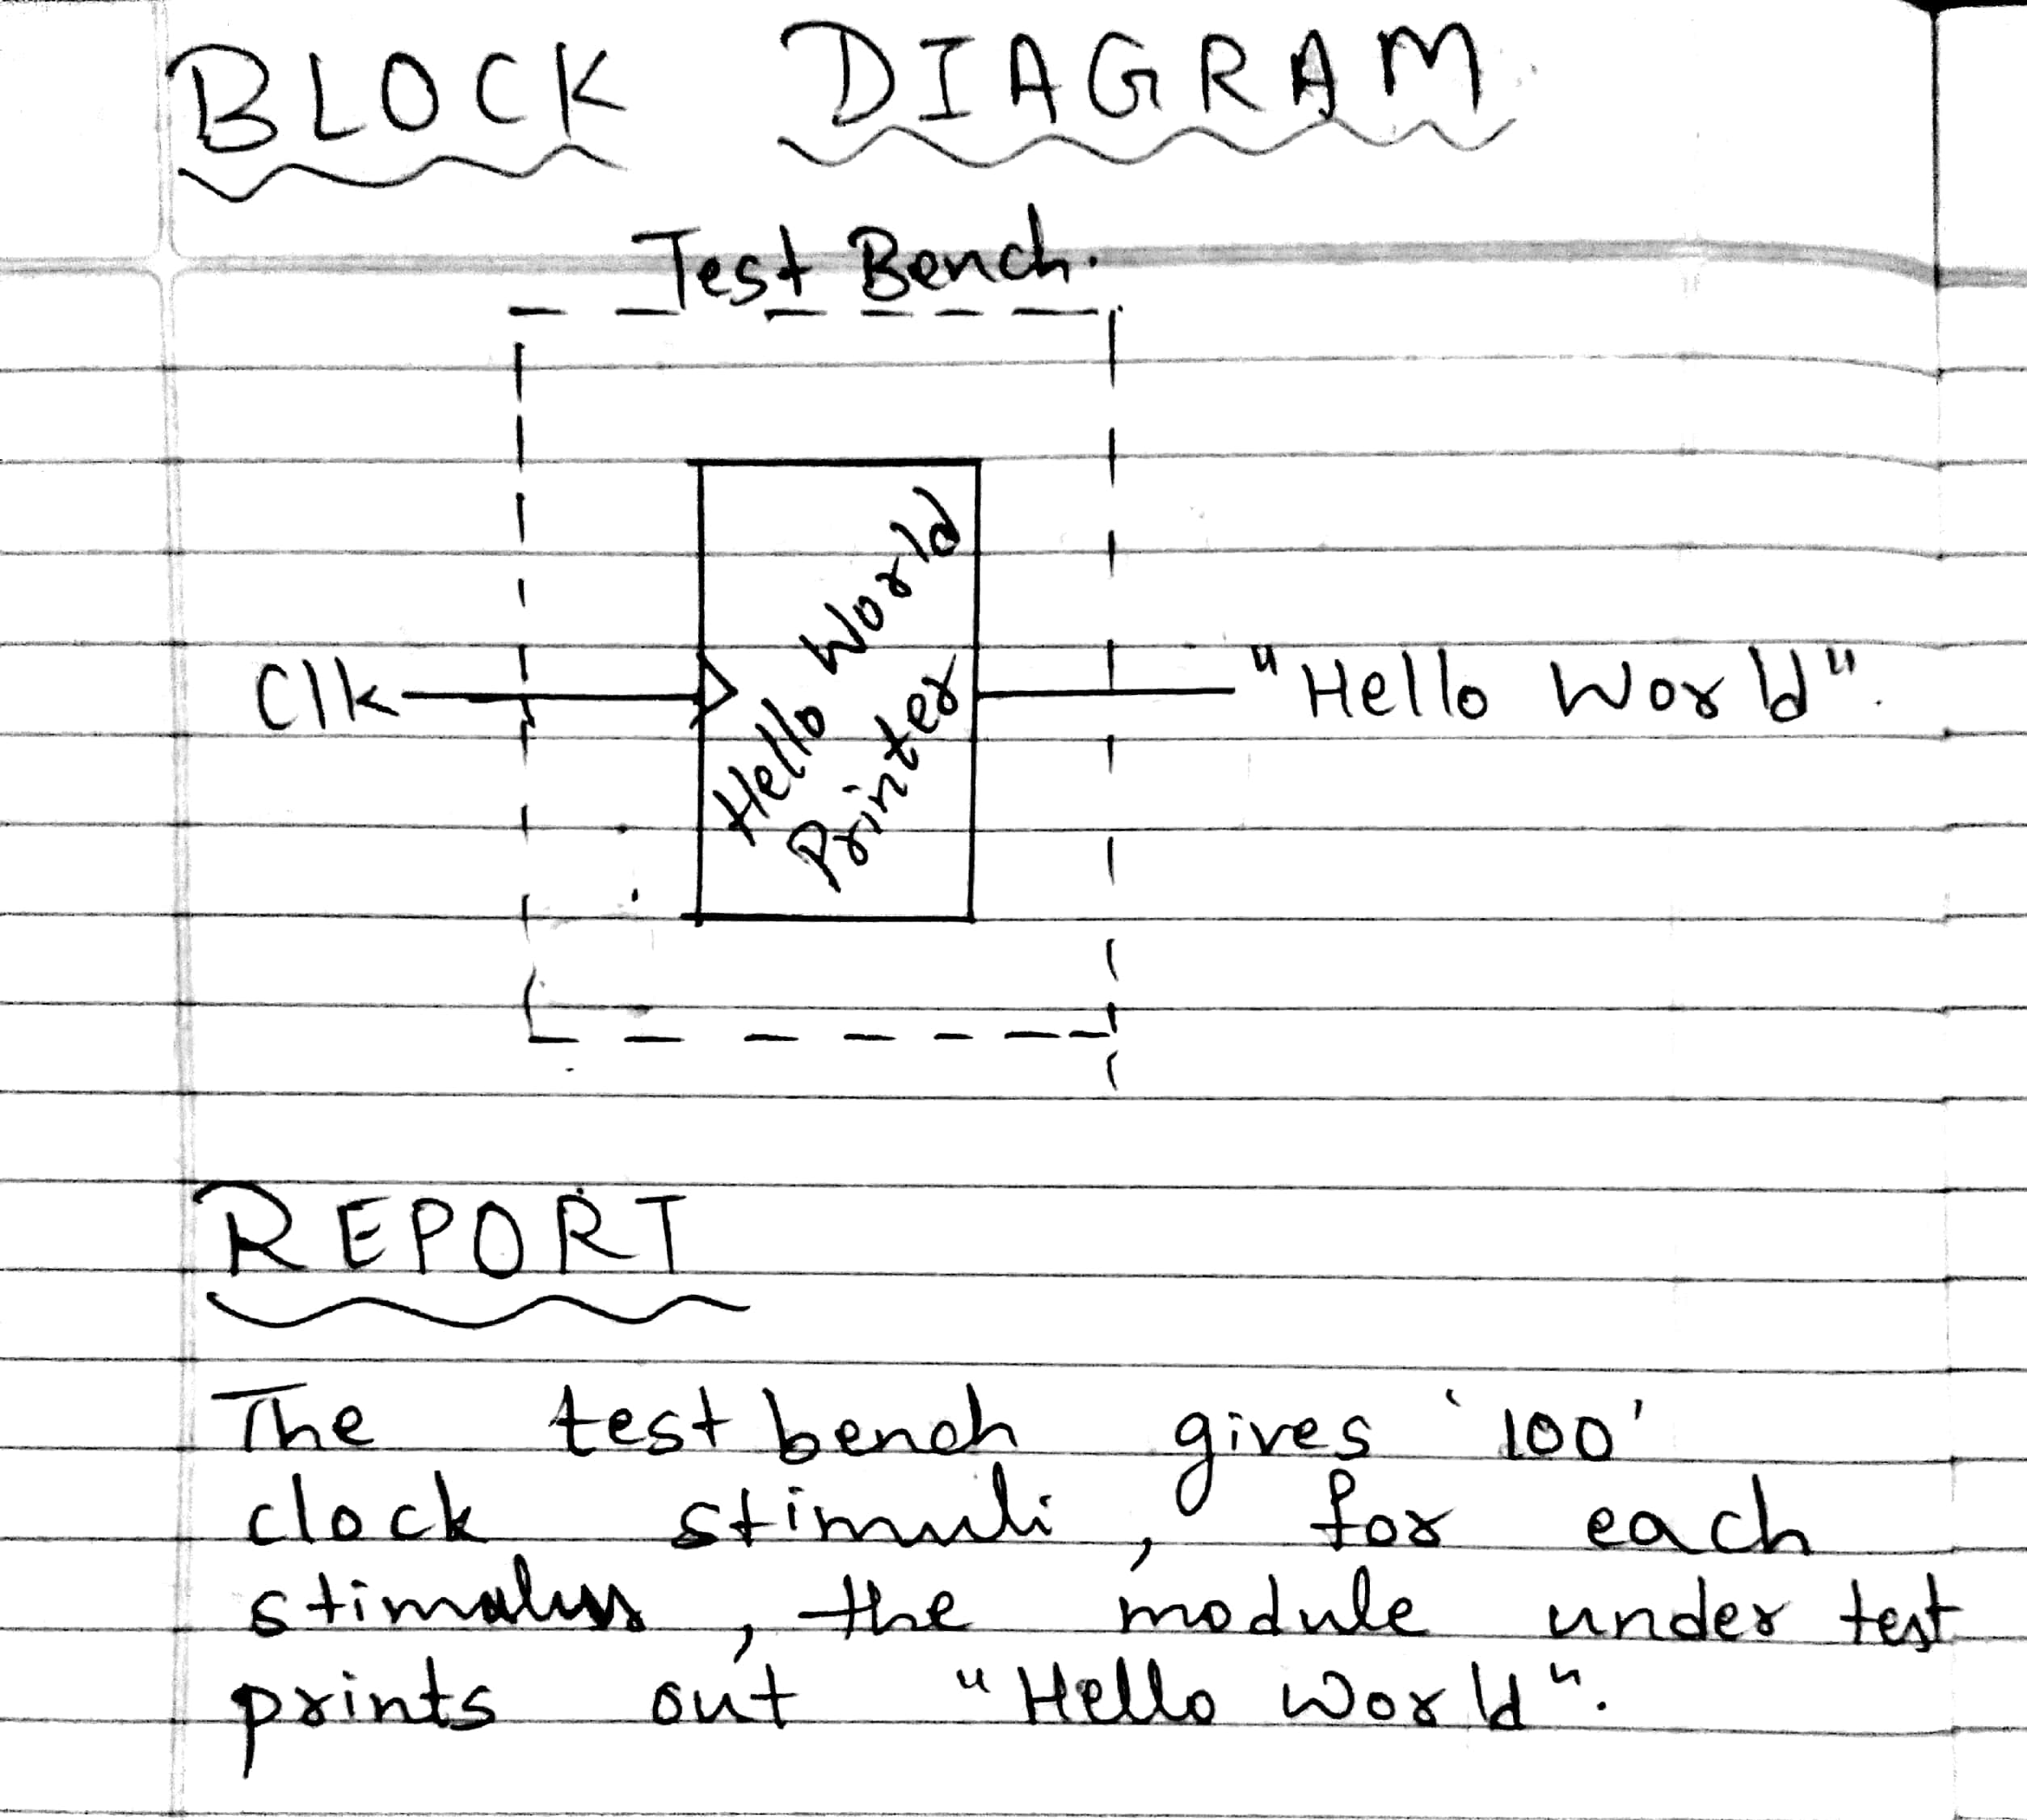 BLOCK DIAGRAM
Test Bench.
Clk
Hello World
Printer
"Hello World".
REPORT
The test bench gives '100'
clock stimuli, for each
stimulus, the module under test
prints out "Hello World".